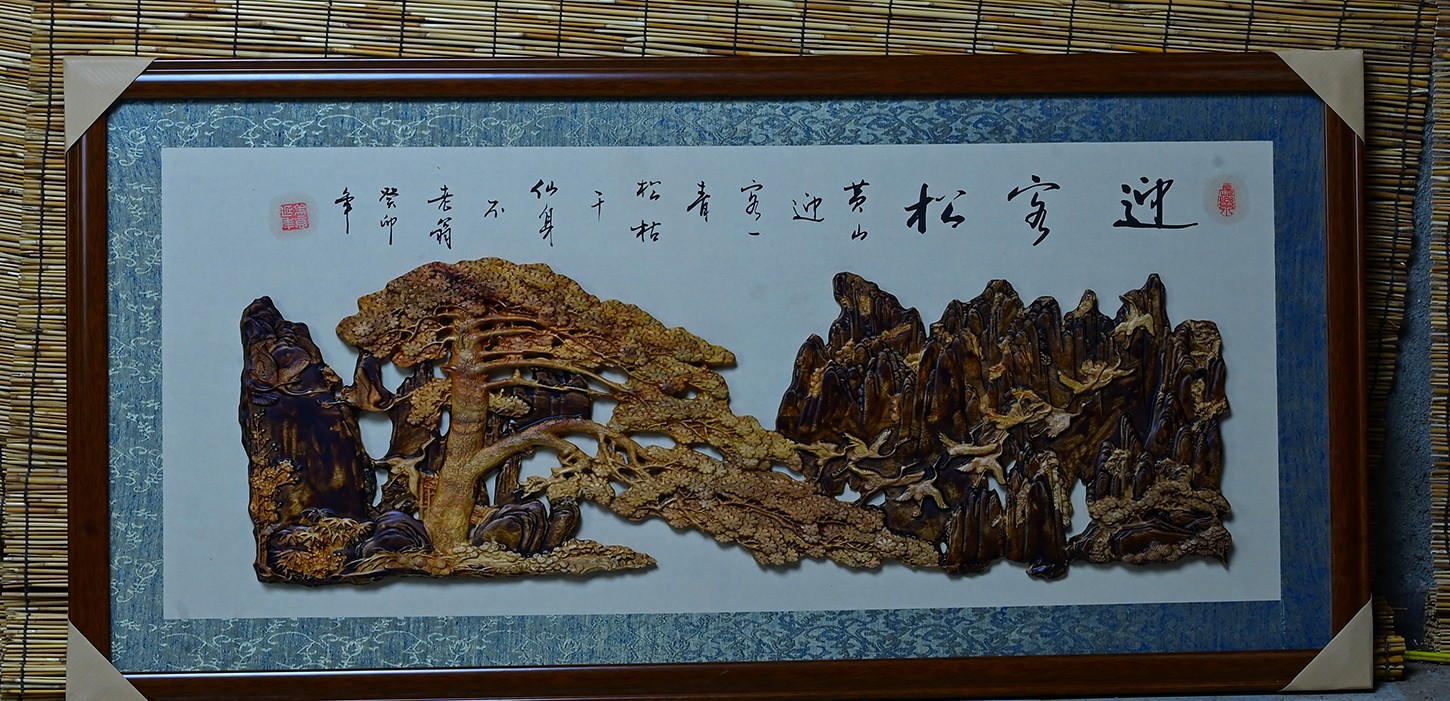 迎客松
黄山
迎
客一
青
松枯
干
仙身
不
老翁
癸卯
年